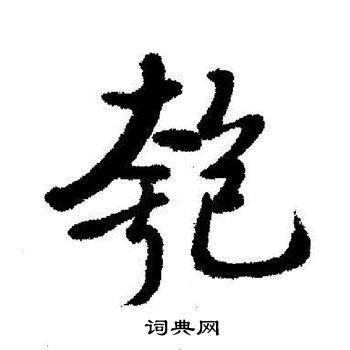 匏
词典网